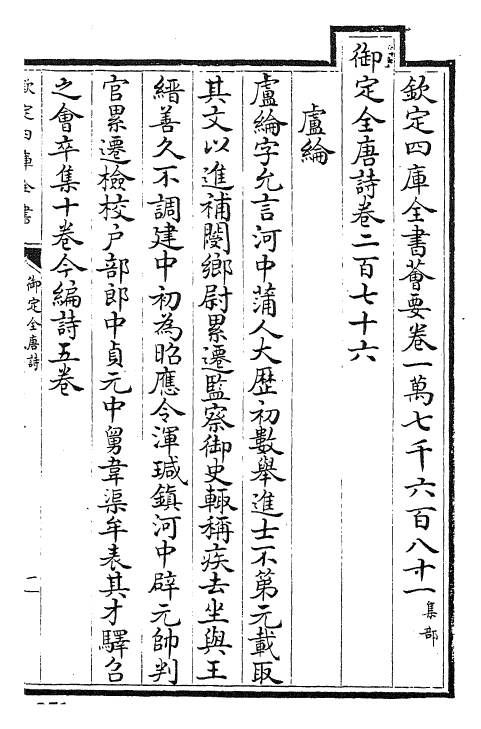 欽定四庫全書薈要卷一萬七千六百八十一 集部
御定全唐詩卷二百七十六
盧綸
盧綸字允言河中蒲人大歷初數舉進士不第元載取
其文以進補閿鄉尉累遷監察御史輙稱疾去坐與王
縉善久不調建中初為昭應令渾瑊鎮河中辟元帥判
官累遷檢校户部郎中貞元中舅韋渠牟表其才驛召
之會卒集十卷今編詩五卷
欽定四庫全書
御定全唐詩